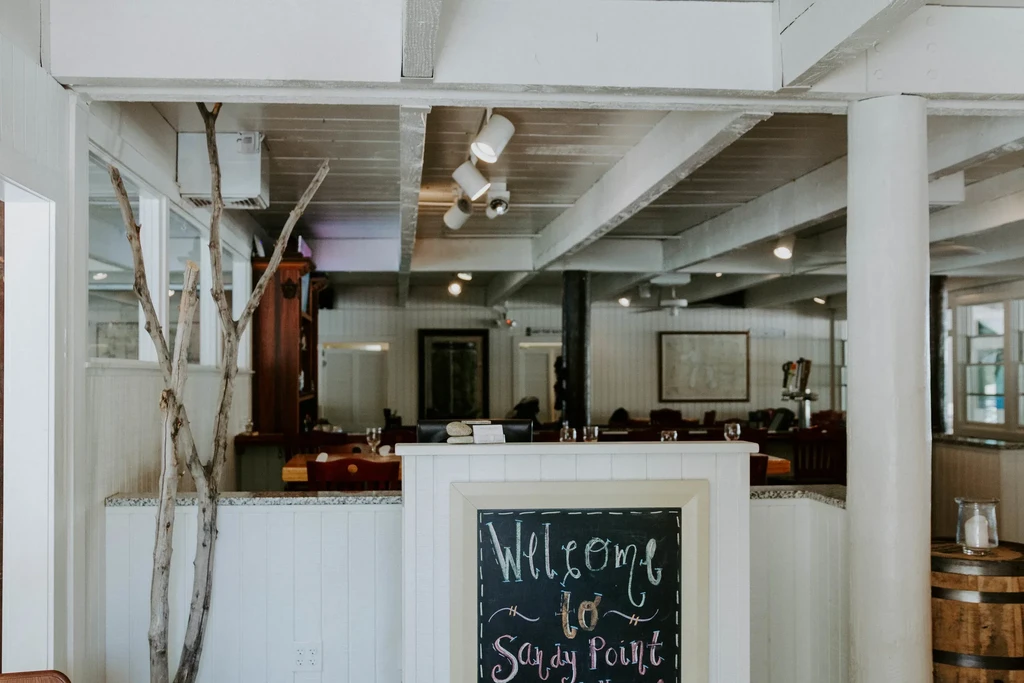 Welcome
to
Sandy Point